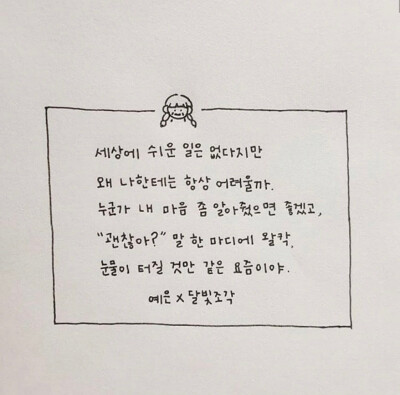 세상에 쉬운 일은 없다지만
왜 나한테는 항상 어려울까.
누군가 내 마음 좀 알아줬으면 좋겠고,
"괜찮아?" 말 한 마디에 왈칵.
눈물이 터질 것만 같은 요즘이야.
예은 x 달빛조각